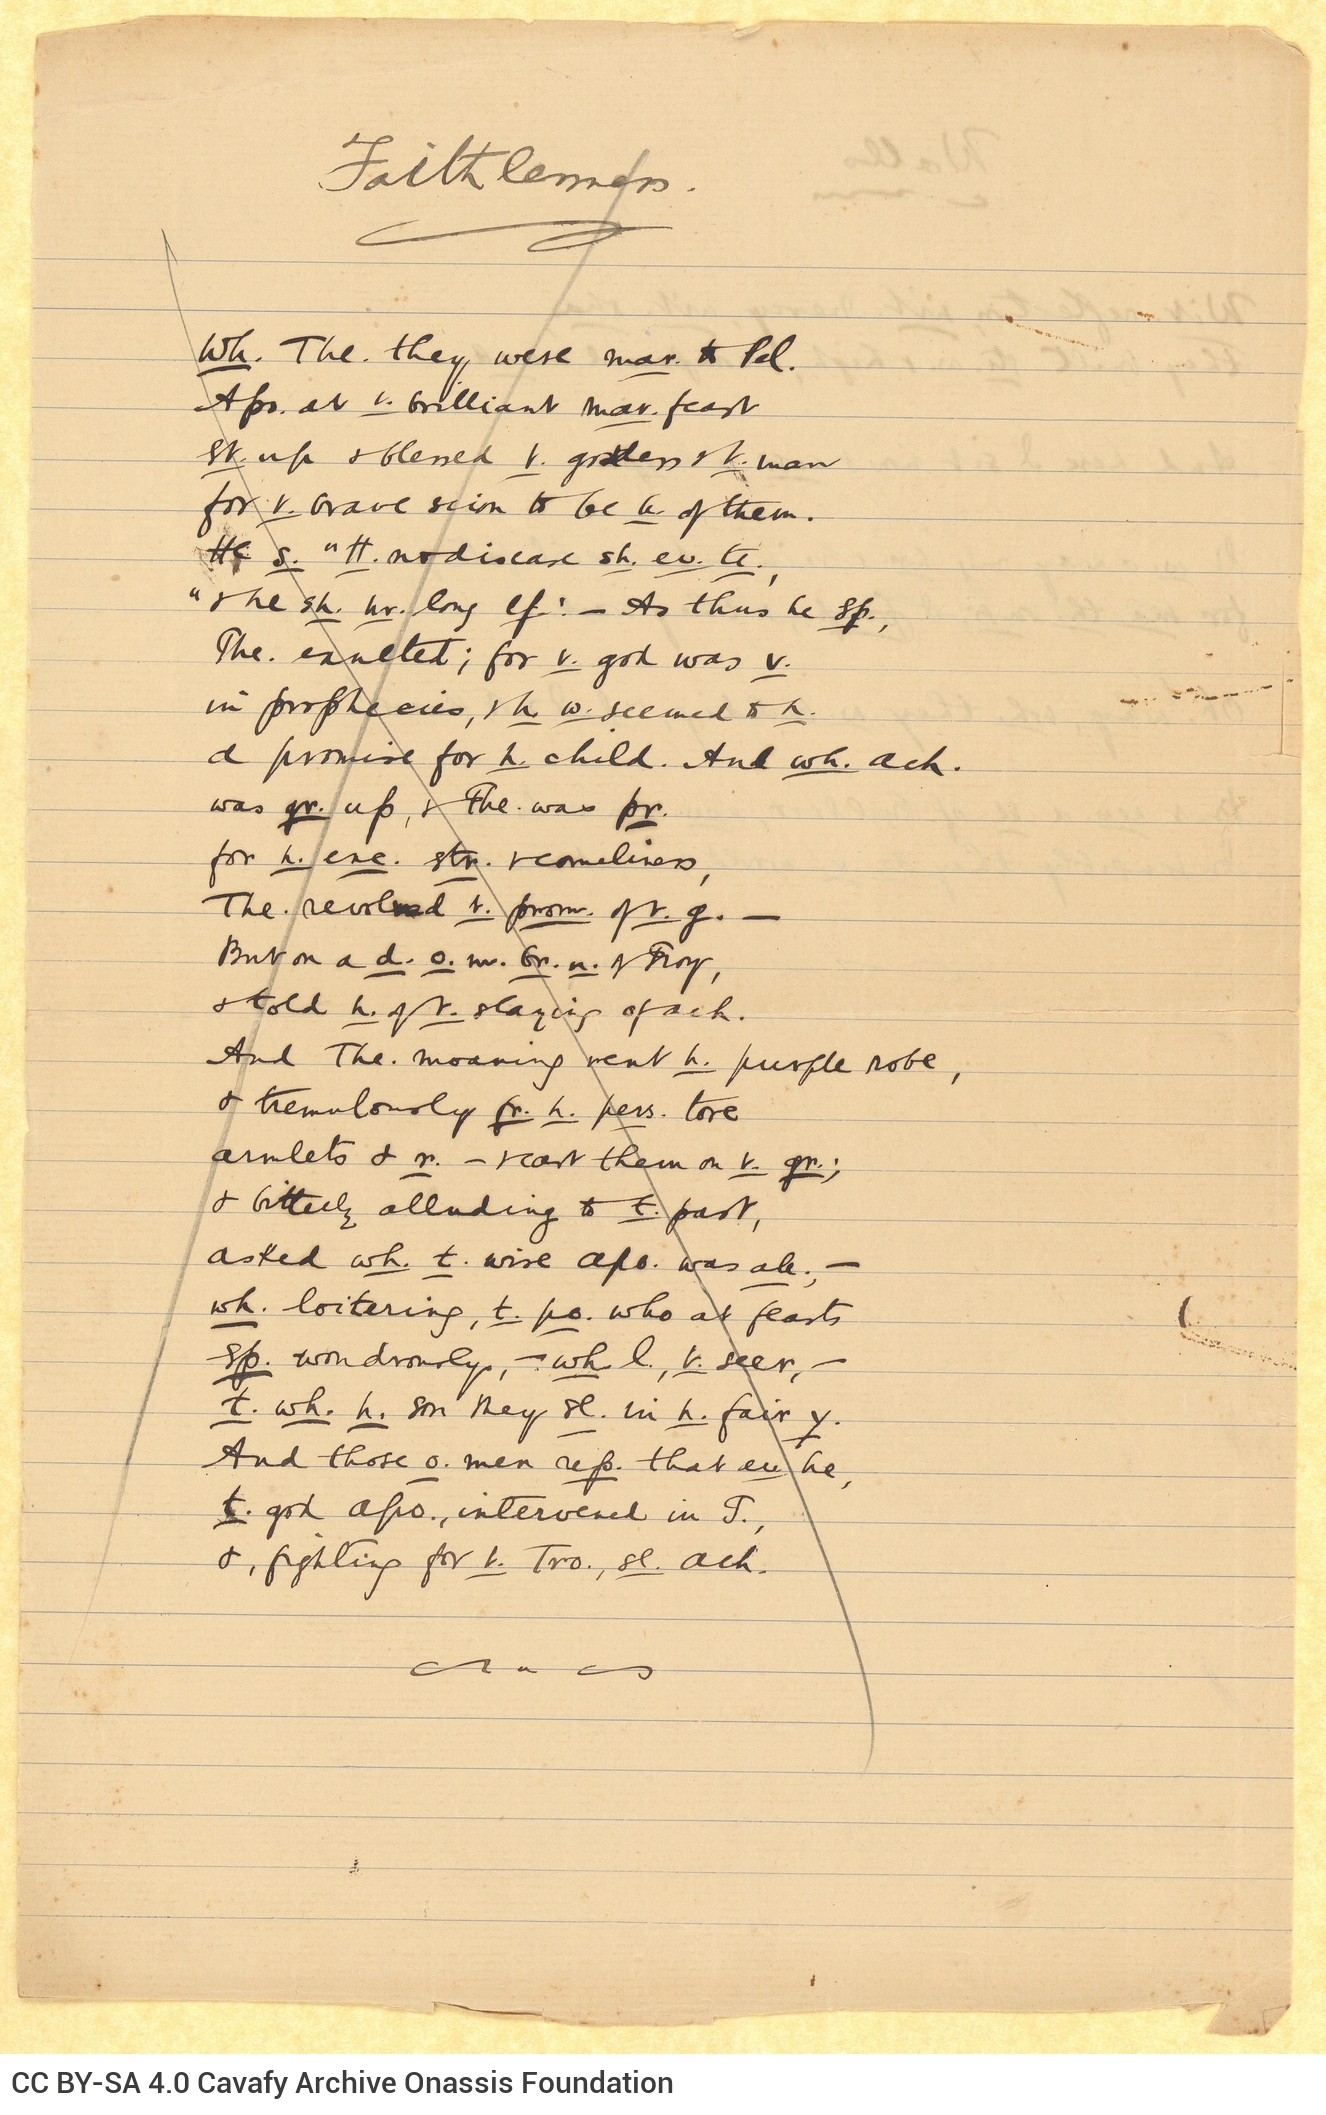 Faithlessness.
Wh. The. they were mar. to Pel.
Apo. at t. brilliant mar. feast
st. up & blessed t. goddess & t. man
for t. brave scion to be h. of them.
He s. "H. no disease sh. ev. te.,
"& he sh. hv. long lf.' — As thus he sp.,
The. exulted; for t. god was v.
in prophecies, & h. w. seemed to h.
a promise for h. child. And wh. Ach.
was gr. up, & The. was pr.
for h. exc. str. & comeliness,
The. revolved t. prom. of t. g. —
But on a d. o. m. br. n. of Troy,
& told h. of t. slaying of Ach.
And The. moaning rent h. purple robe,
& tremulously fr. h. pers. tore
armlets & r. — & cast them on t. gr.;
& bitterly alluding to t. past,
asked wh. t. wise Apo. was ab., —
wh. loitering, t. po. who at feasts
sp. wondrously, — wh. l., t. seer, —
t. wh. h. son they sl. in h. fair y.
And those o. men rep. that ev. he,
t. god Apo., intervened in T.,
&, fighting for t. Tro., sl. Ach.
CC BY-SA 4.0 Cavafy Archive Onassis Foundation